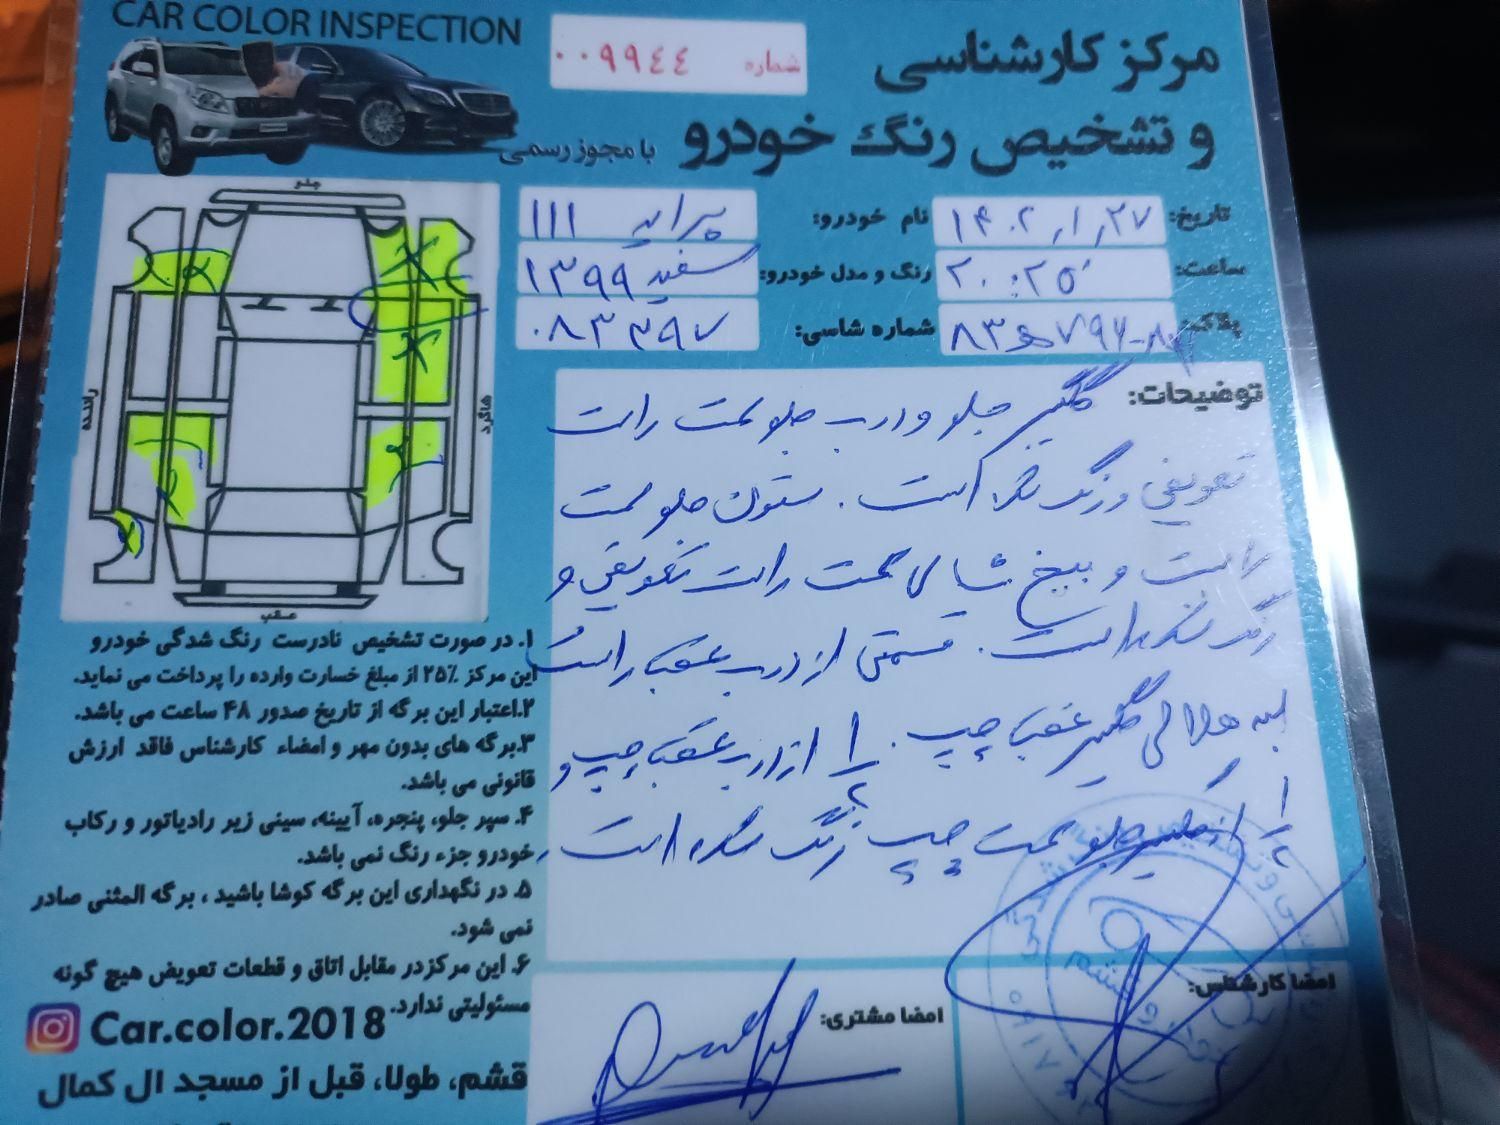 CAR COLOR INSPECTION
شماره ۰۰۹۹٤٤
مرکز کارشناسی
و تشخیص رنگ خودرو با مجوز رسمی
تاریخ: ۱۴۰۲,۱,۲۷ نام خودرو: پراید ۱۱۱
ساعت: ۲۰:۲۵ رنگ و مدل خودرو: سفید ۱۳۹۹
پلاک: ۸۳ ۷۹۶ شماره شاسی: ۰۸۳۳۹۷
جلو
راننده
شاگرد
عقب
توضیحات:
گلگیر جلو و درب جلو سمت راست
تعویض و رنگ شده است. ستون جلو سمت
راست و بیخ شاسی سمت راست تعویض و
رنگ شده است. قسمتی از درب عقب راست
لبه هلالی گلگیر عقب چپ. ۱/۲ از درب عقب چپ و
۱/۲ از گلگیر جلو سمت چپ رنگ شده است.
۱. در صورت تشخیص نادرست رنگ شدگی خودرو
این مرکز ۲۵٪ از مبلغ خسارت وارده را پرداخت می نماید.
۲.اعتبار این برگه از تاریخ صدور ۴۸ ساعت می باشد.
۳.برگه های بدون مهر و امضاء کارشناس فاقد ارزش
قانونی می باشد.
۴. سپر جلو، پنجره، آیینه، سینی زیر رادیاتور و رکاب
خودرو جزء رنگ نمی باشد.
۵. در نگهداری این برگه کوشا باشید ، برگه المثنی صادر
نمی شود.
۶. این مرکزدر مقابل اتاق و قطعات تعویض هیچ گونه
مسئولیتی ندارد.
Car.color.2018
قشم، طولا، قبل از مسجد ال کمال
امضا مشتری:
امضا کارشناس: